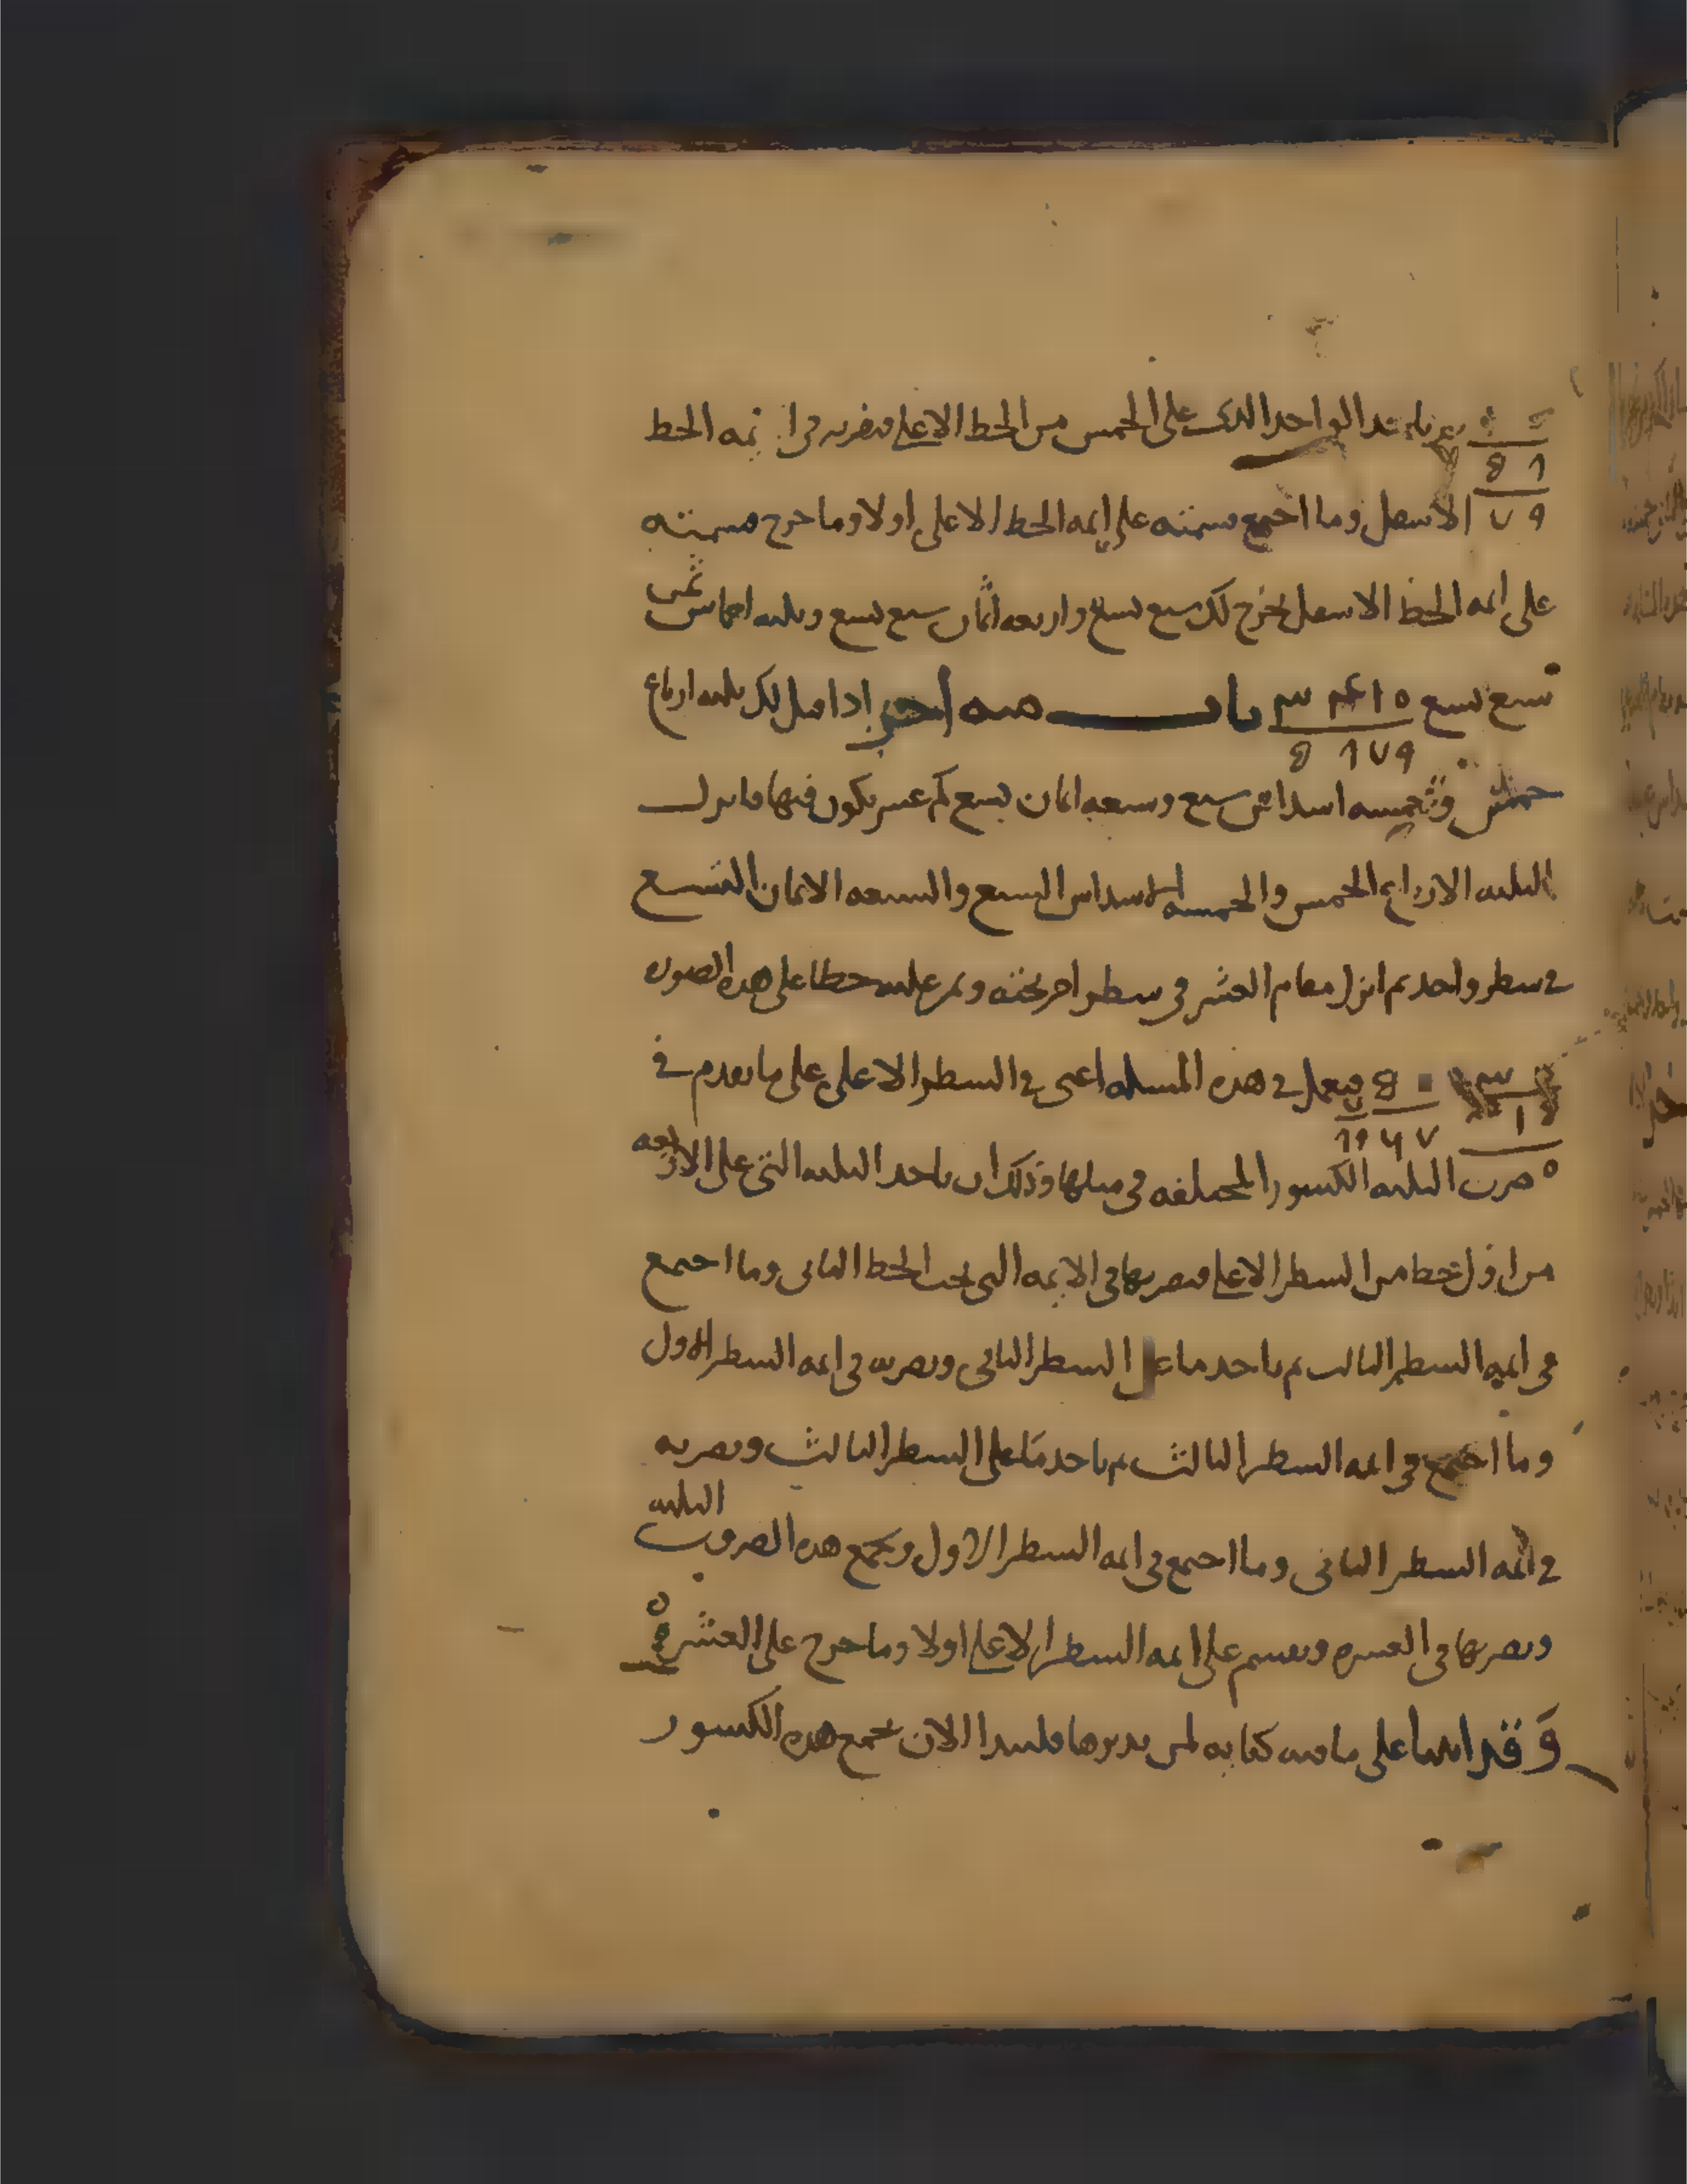 ثم تاخد الواحد الدى على الخمس من الخط الاعلى فتضربه فى ايمه الخط
٩ ٧ الاسفل وما اجتمع قسمته على ايمه الخط الاعلى اولا وما خرج قسمته
على ايمه الخط الاسفل يخرج لك سبع تسع واربعه اثمان سبع تسع وثلثه اخماس ثمن
سبع تسع باب منه اخر ادا قيل لك ثلثه ارباع
خمس وخمسه اسداس سبع وسبعه اثمان تسع كم عشر يكون فيها فانزل
الثلثه الارباع الخمس والخمسه الاسداس السبع والسبعه الاثمان التسع
فى سطر واحد ثم انزل مقام العشر فى سطر اخر تحته وتمر عليه خطا على هده الصوره
فيعمل فى هده المسله اعنى فى السطر الاعلى على ما تقدم فى
ضرب الثلثه الكسور المختلفه فى مثلها ودلك ان تاخد الثلثه التى على الاربعه
من اول خط من السطر الاعلى فتضربها فى الايمه التى تحت الخط الثانى وما اجتمع
فى ايمه السطر الثالث ثم تاخد ما على السطر الثانى وتضربه فى ايمه السطر الاول
وما اجتمع فى ايمه السطر الثالث ثم تاخد ما على السطر الثالث وتضربه
فى ايمه السطر الثانى وما اجتمع فى ايمه السطر الاول وتجمع هده الضروب الثلثه
وتضربها فى العشره وتقسم على ايمه السطر الاعلى اولا وما خرج على العشره
وقد اتينا على ما فيه كفايه لمن تدبرها فلنبدا الان بجمع هده الكسور